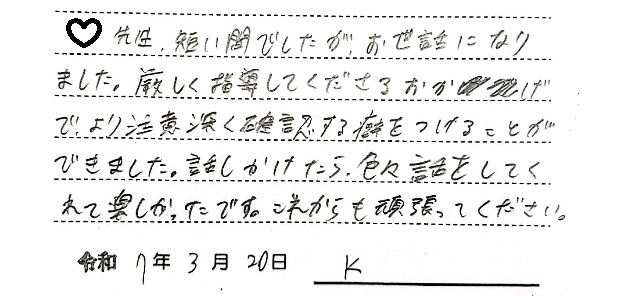 ♡先生、短い間でしたが、お世話になり
ました。厳しく指導してくださるおかげ
で、より注意深く確認する癖をつけることが
できました。話しかけたら、色々話をしてく
れて楽しかったです。これからも頑張ってください。
令和7年3月20日 K